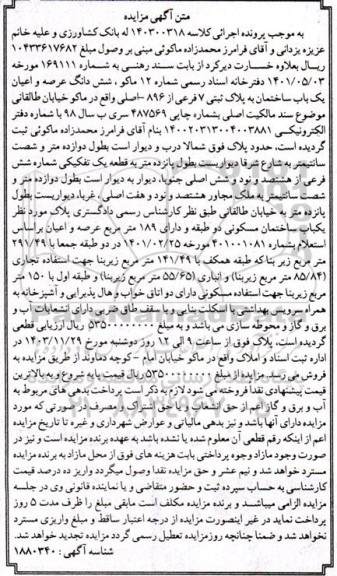 متن آگهی مزایده
به موجب پرونده اجرائی کلاسه ۱۴۰۳۰۰۳۱۸ له بانک کشاورزی و علیه خانم
عزیزه یزدانی و آقای فرامرز محمدزاده ماکوئی مبنی بر وصول مبلغ ۱۰۴۳۳۶۱۷۶۸۲
ریسال بعلاوه خسارت دیرکرد از بابت سند رهنی به شماره ۱۶۹۱۱۱ مورخه
۱۴۰۱/۰۵/۰۳ دفترخانه اسناد رسمی شماره ۱۲ ماکو ، شش دانگ عرصه و اعیان
یک باب ساختمان به پلاک ثبتی ۷ فرعی از ۸۹۶ -اصلی واقع در ماکو خیابان طالقانی
موضوع سند مالکیت اصلی بشماره چاپی ۴۸۷۵۶۹ سری ب سال ۹۸ با شماره دفتر
الکترونیکی ۱۴۰۰۲۰۳۱۳۰۰۴۰۰۳۸۸۱ بنام آقای فرامرز محمدزاده ماکوئی ثبت
گردیده است، حدود پلاک فوق شمالا درب و دیوار است بطول دوازده متر و شصت
سانتیمتر به شارع شرقا دیواریست بطول پانزده متر به قطعه یک تفکیکی شماره شش
فرعی از هشتصد و نود و شش اصلی جنوبا، دیوار به دیوار است بطول دوازده متر و
شصت سانتیمتر به ملک مجاور هشتصد و نود و هفت اصلی ، غربا، دیواریست بطول
پانزده متر به خیابان طالقانی طبق نظر کارشناس رسمی دادگستری پلاک مورد نظر
یکباب ساختمان مسکونی دو طبقه و دارای ۱۸۹ متر مربع عرصه و اعیان براساس
استعلام بشماره ۴۰۱۰۰۱۰۸۱ مورخه ۱۴۰۱/۰۲/۲۵ در دو طبقه جمعا با ۲۹۱/۴۹
متر مربع زیر بنا که طبقه همکف با ۱۴۱/۴۹ متر مربع زیربنا جهت استفاده تجاری
(۸۵/۸۴ متر مربع زیربنا) و انباری (۵۵/۶۵ متر مربع زیربنا) و طبقه اول با ۱۵۰ متر
مربع زیربنا جهت استفاده مسکونی دارای دو اتاق خواب و هال پذیرایی و آشپزخانه به
همراه سرویس بهداشتی با اسکلت بنایی و با سقف طاق ضربی دارای انشعابات آب و
برق و گاز و محوطه سازی می باشد و به مبلغ ۵۳۵۰۰۰۰۰۰۰۰ ریال ارزیابی قطعی
گردیده است، پلاک فوق از ساعت ۹ الی ۱۲ روز دوشنبه مورخ ۱۴۰۳/۱۰/۲۹ در
اداره ثبت اسناد و املاک واقع در ماکو خیابان امام -کوچه دماوند از طریق مزایده به
فروش می رسد. مزایده از مبلغ ۵۳۵۰۰۰۰۰۰۰۰ ریال قیمت پایه شروع و به بالاترین
قیمت پیشنهادی نقدا فروخته می شود لازم به ذکر است پرداخت بدهی های مربوط به
آب و برق و گاز اعم از حق انشعاب و یا حق اشتراک و مصرف در صورتی که مورد
مزایده دارای آنها باشد و نیز بدهی مالیاتی و عوارض شهرداری و غیره تا تاریخ مزایده
اعم از اینکه رقم قطعی آن معلوم شده یا نشده باشد به عهده برنده مزایده است و نیز در
صورت وجود مازاد وجوه پرداختی بابت هزینه های فوق از محل مازاد به برنده مزایده
مسترد خواهد شد و نیم عشر و حق مزایده نقدا وصول میگردد واریز ده درصد قیمت
کارشناسی به حساب سپرده ثبت و حضور متقاضی و یا نماینده قانونی وی در جلسه
مزایده الزامی میباشد و برنده مزایده مکلف است مابقی مبلغ را ظرف مدت ۵ روز
پرداخت نماید در غیر اینصورت مزایده از درجه اعتبار ساقط و مبلغ واریزی مسترد
نخواهد شد و ضمنا چنانچه روزمزایده تعطیل رسمی گردد مزایده تجدید خواهد شد.
شناسه آگهی : ۱۸۸۰۳۴۰